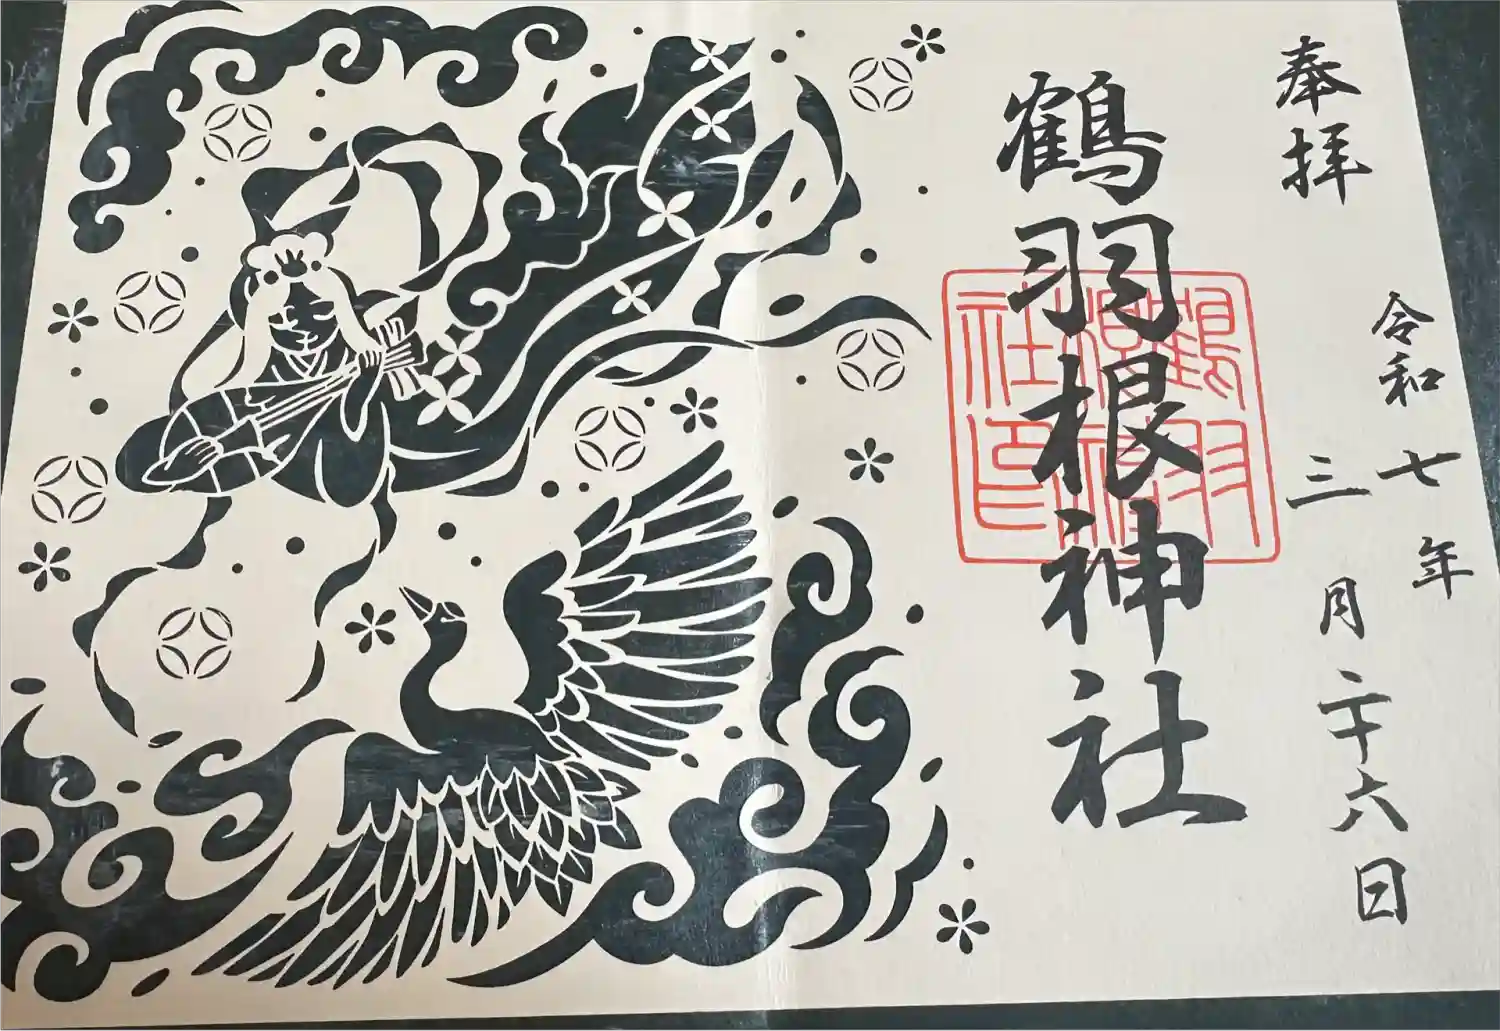 奉拝
令和七年
三月二十六日
鶴羽根神社
鶴羽
根神
社印